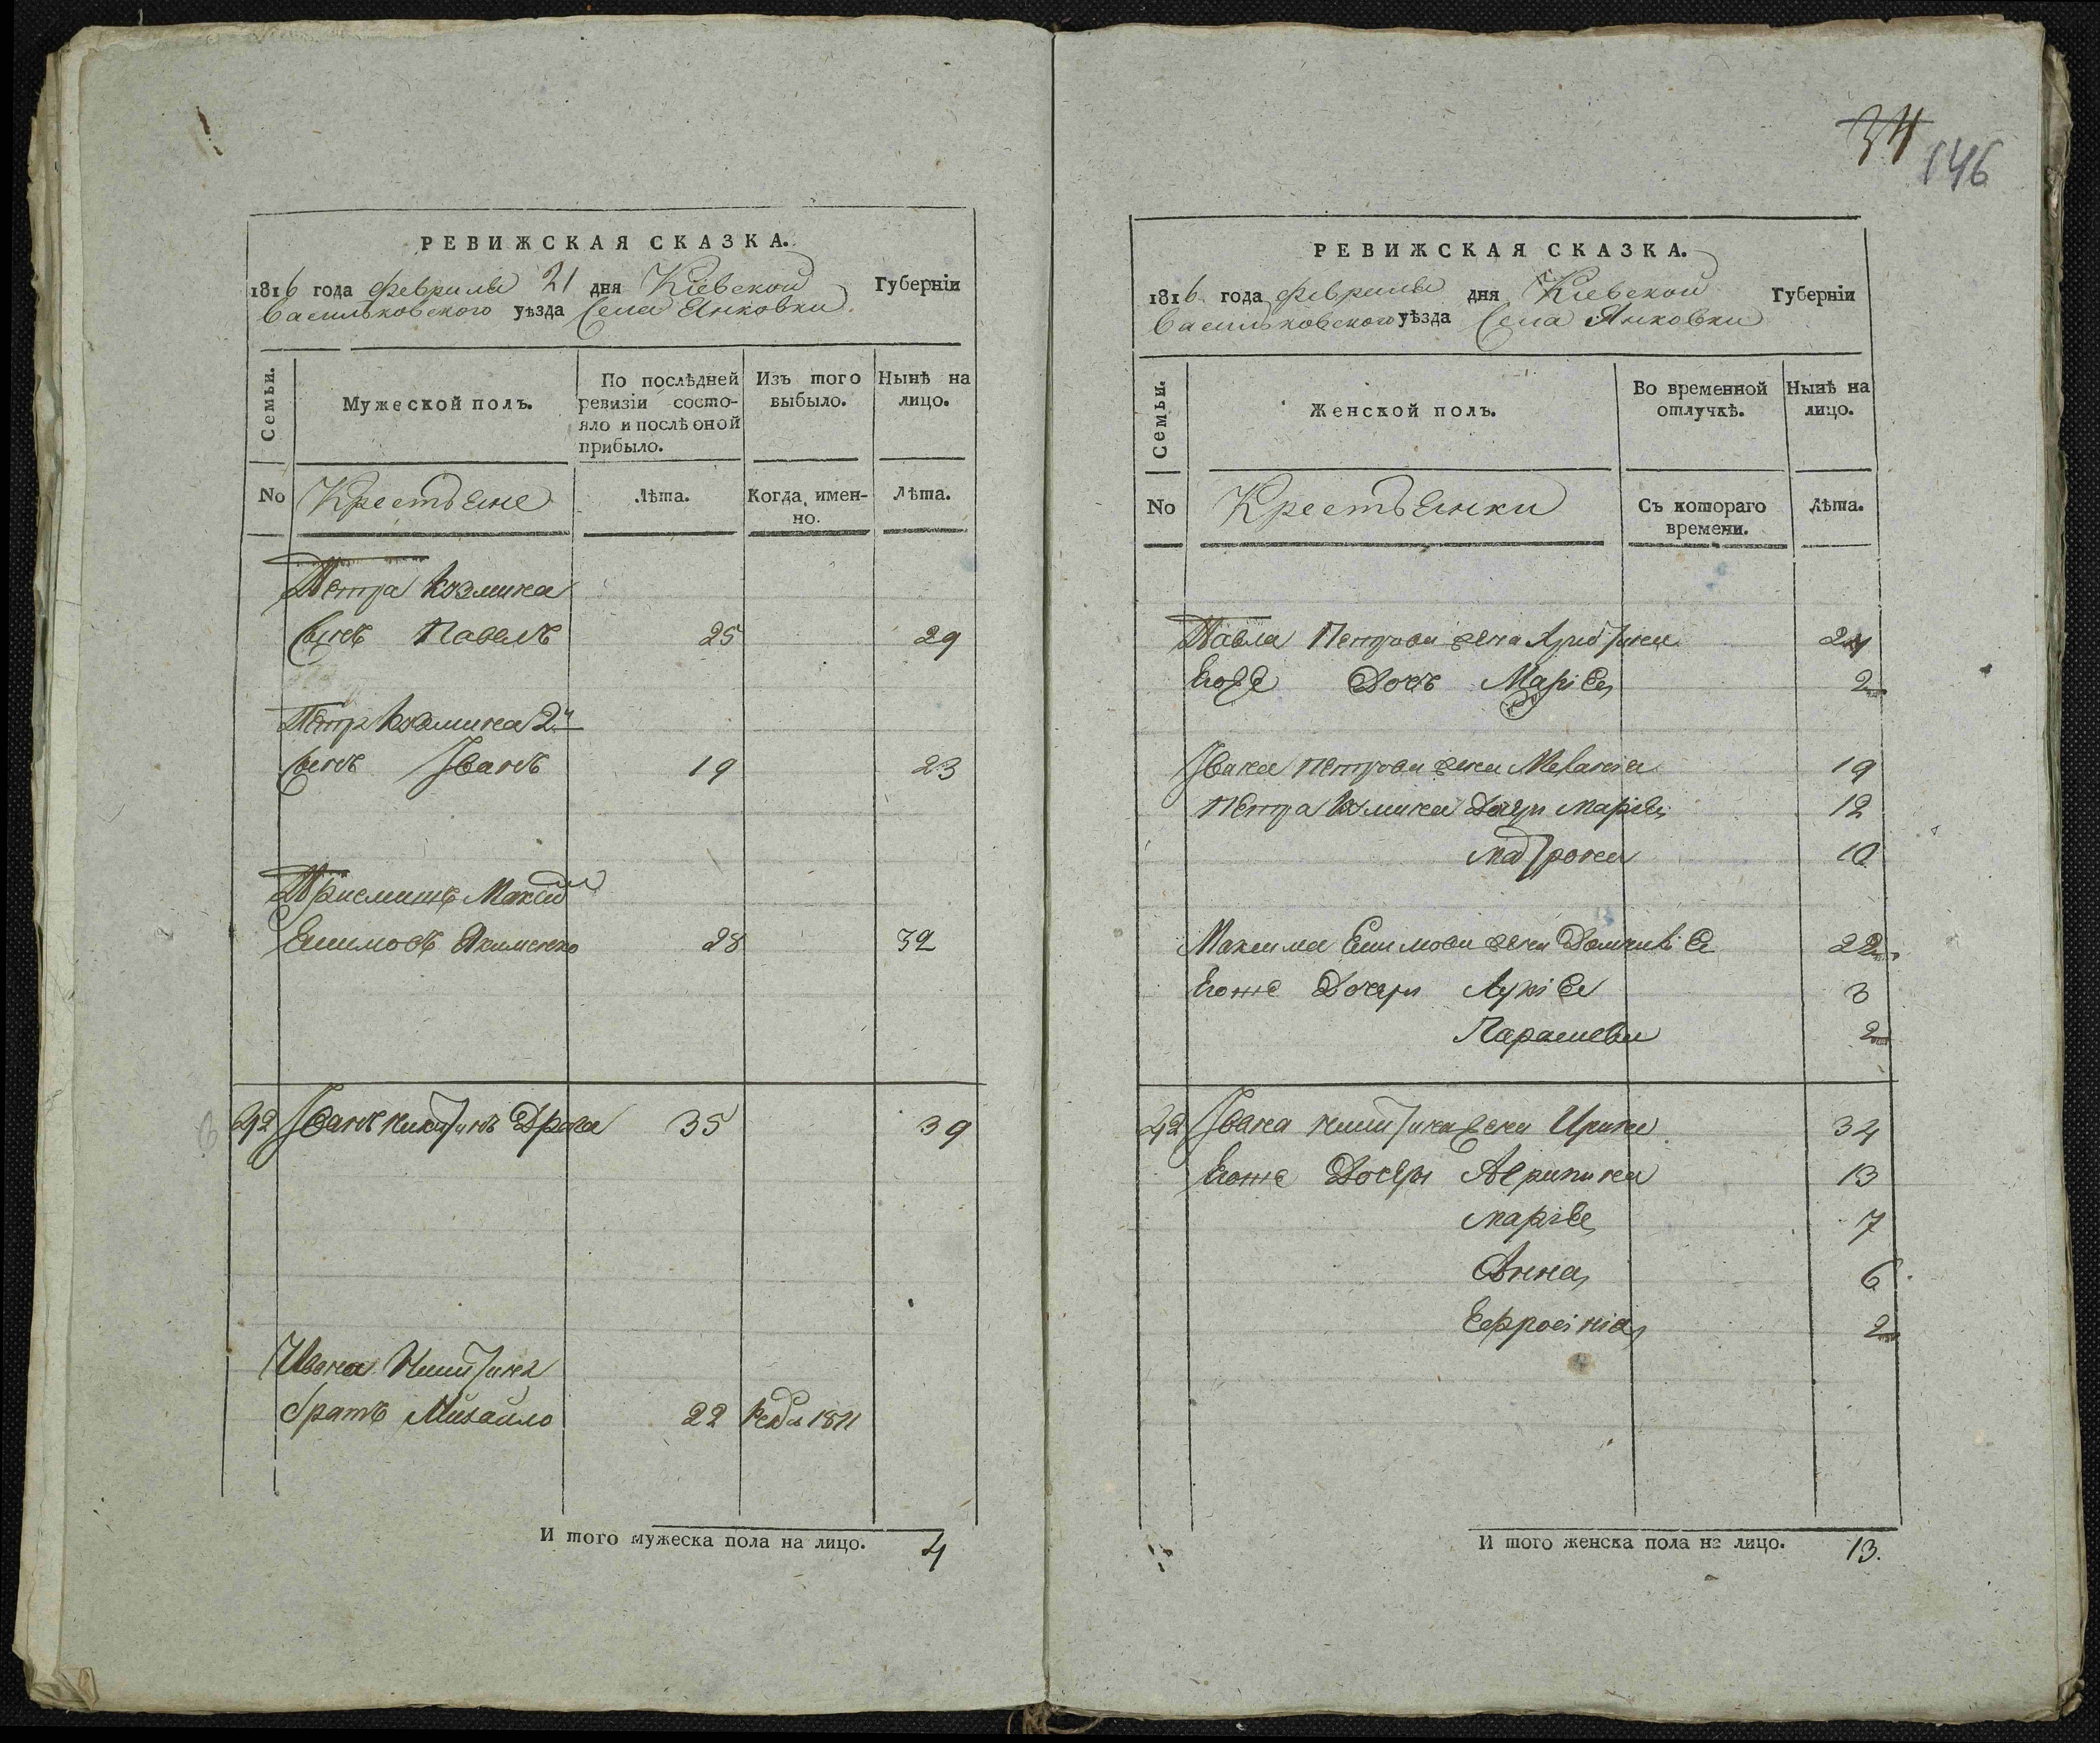 РЕВИЖСКАЯ СКАЗКА.
1816 года февраля 21 дня Кіевской Губерніи
Васильковского уѣзда Села Янковки
Семьи.
Мужеской полъ.
По послѣдней ревизіи состо-
яло и послѣ оной
прибыло.
Изъ того
выбыло.
Нынѣ на
лицо.
No
Крестьяне
Лѣта.
Когда имен-
но.
Лѣта.
Петра
Сынъ Павелъ 25 29
Петра 2й
Сынъ Іванъ 19 23
Максим
Якименко 28 32
42 Іванъ 35 39
Ивана
братъ Михайло 22 1811
И того мужеска пола на лицо. 4
34
146
РЕВИЖСКАЯ СКАЗКА.
1816 года февраля дня Кіевской Губерніи
Васильковского уѣзда Села Янковки
Семьи.
Женской полъ.
Во временной
отлучкѣ.
Нынѣ на
лицо.
No
Крестьянки
Съ котораго
времени.
Лѣта.
Павла Петрова жена 24
Егоже Дочь Марія 2
Івана Петрова жена Меланія 19
Петра Дочери Марія 12
Матрона 10
Максима жена 22
Егоже Дочери 3
Параскева 2
42 Івана жена Ирина 34
Егоже Дочери Агрипина 13
Марія 7
Анна 6
Ефросінія 2
И того женска пола на лицо. 13.